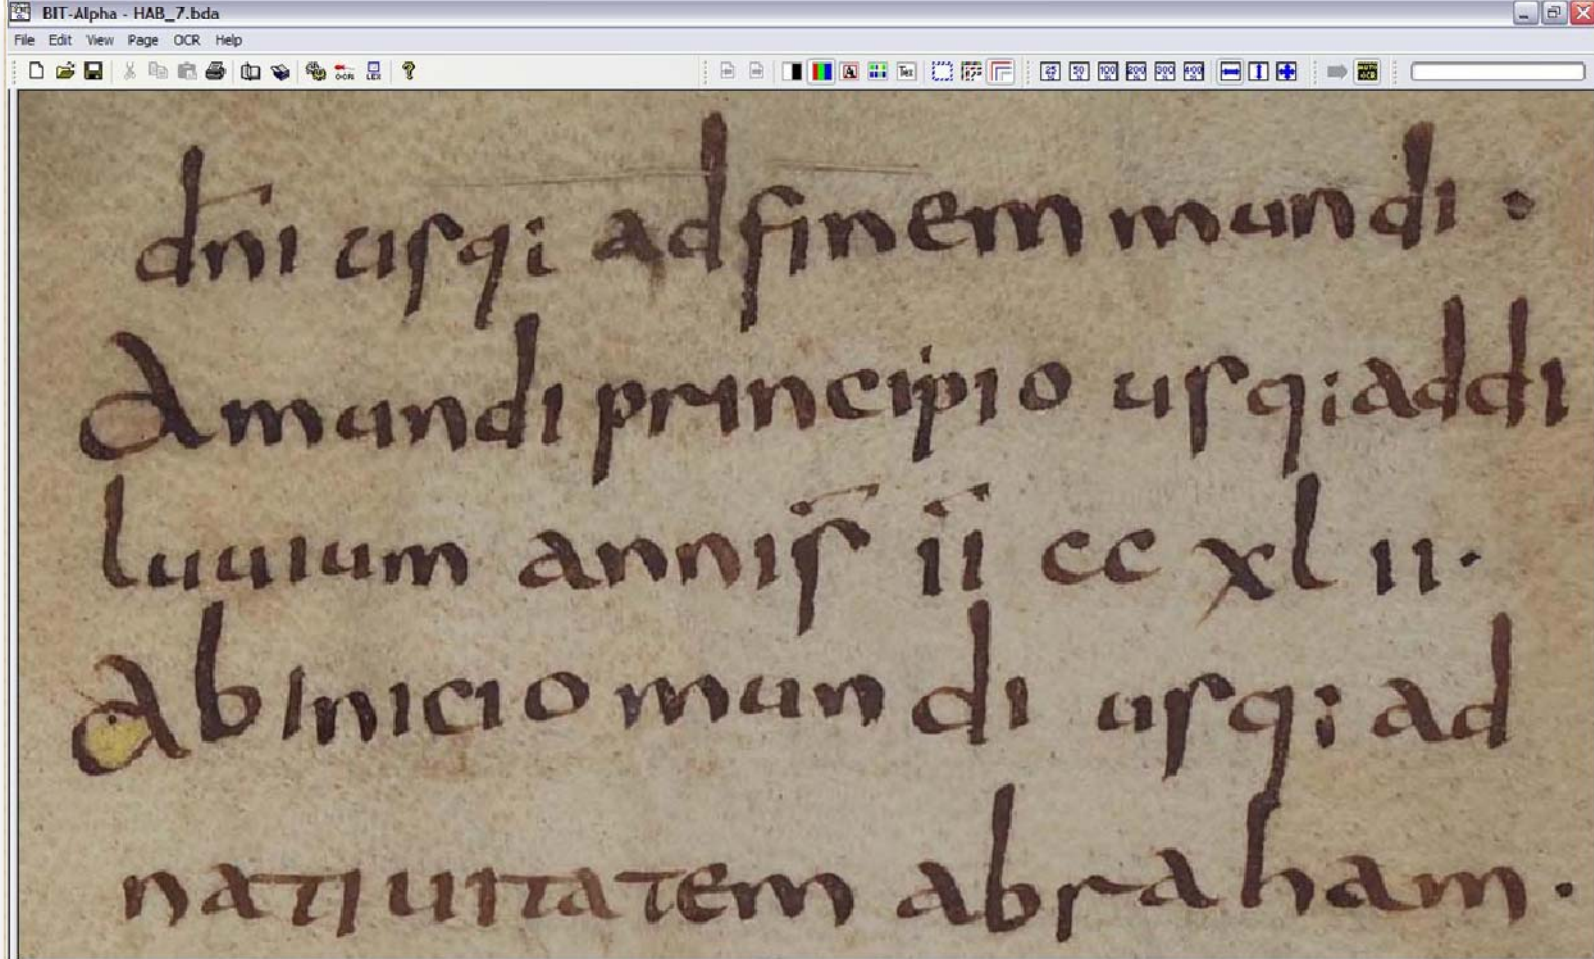 BIT-Alpha - HAB_7.bda
File Edit View Page OCR Help
dn̄i usq; adfinem mundi ·
Amundi principio usq; addi
luuium annis̄ īī cc xl ii ·
Abinicio mundi usq; ad
natiuitatem abraham ·